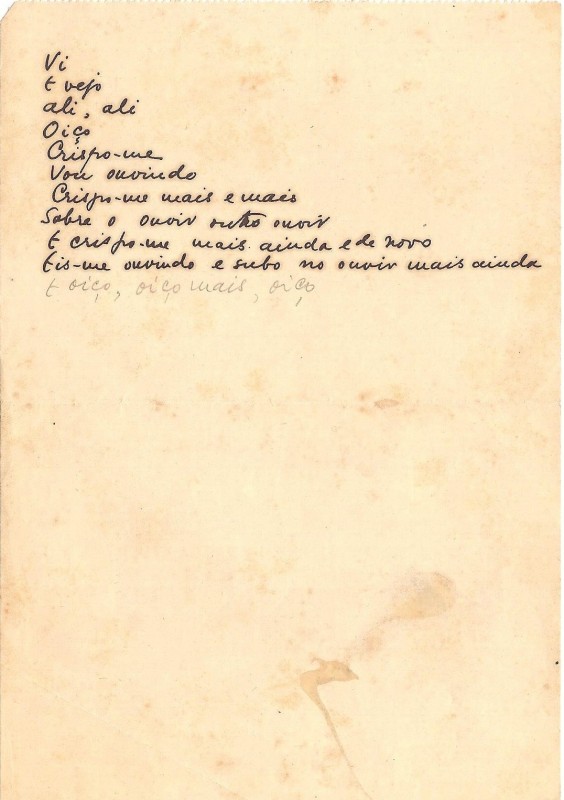 Vi
E vejo
ali, ali
Oiço
Crispo-me
Vou ouvindo
Crispo-me mais e mais
Sobre o ouvir outro ouvir
E crispo-me mais ainda e de novo
Eis-me ouvindo e subo no ouvir mais ainda
E oiço, oiço mais, oiço